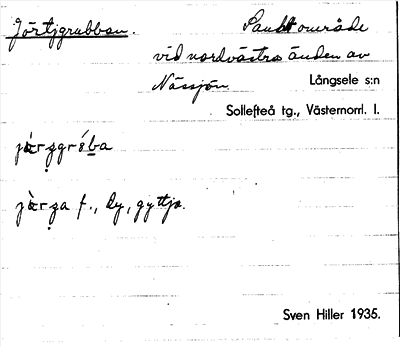 Jörtjgrubban. Sankt område
vid nordvästra änden av
Nässjön Långsele s:n
Sollefteå tg., Västernorrl. l.
jàrzgróba
jàrza f., dy, gyttja.
Sven Hiller 1935.